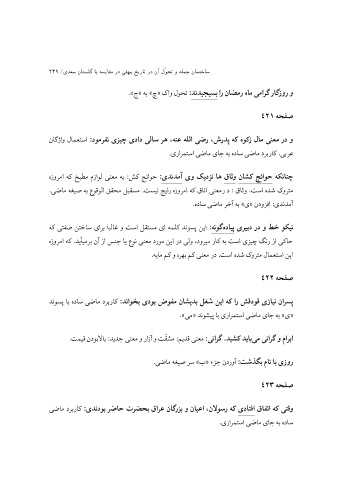 ساختمان جمله و تحوّل آن در تاریخ بیهقی در مقایسه با گلستان سعدی/ ۲۴۹
و روزگار گرامی ماه رمضان را بسیجیدند: تحول واک «چ» به «ج».
صفحه ۴۲۱
و در معنی مال زکوه که پدرش، رضی الله عنه، هر سالی دادی چیزی نفرمود: استعمال واژگان
عربی. کاربرد ماضی ساده به جای ماضی استمراری.
چنانکه حوائج کشان وثاق ها نزدیک وی آمدندی: حوائج کش: به معنی لوازم مطبخ که امروزه
متروک شده است. وثاق : د رمعنی اتاق که امروزه رایج نیست. مستقبل محقق الوقوع به صیغه ماضی.
آمدندی: افزودن «ی» به آخر ماضی ساده.
نیکو خط و در دبیری پیاده‌گونه: این پسوند کلمه ای مستقل است و غالبا برای ساختن صفتی که
حاکی از رنگ چیزی است به کار میرود، ولی در این مورد معنی نوع یا جنس از آن برمیآید. که امروزه
این استعمال متروک شده است. در معنی کم بهره و کم مایه.
صفحه ۴۲۲
پسران نیازی قودقش را که این شغل بدیشان مفوض بودی بخواند: کاربرد ماضی ساده با پسوند
«ی» به جای ماضی استمراری با پیشوند «می».
ابرام و گرانی می‌باید کشید. گرانی: معنی قدیم: مشقّت و آزار و معنی جدید: بالابودن قیمت.
روزی با نام بگذشت: آوردن جزء «ب» سر صیغه ماضی.
صفحه ۴۲۳
وقتی که اتفاق افتادی که رسولان، اعیان و بزرگان عراق بحضرت حاضر بودندی: کاربرد ماضی
ساده به جای ماضی استمراری.